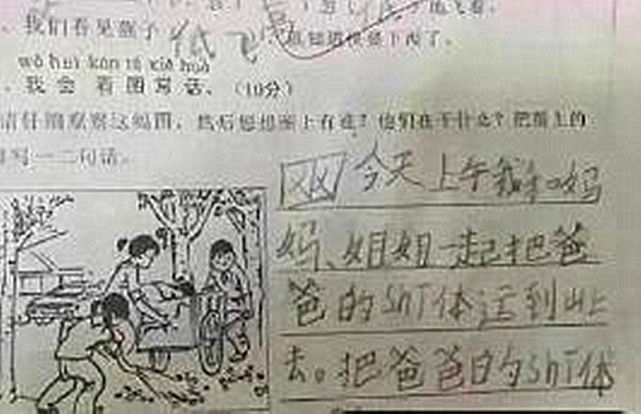 我们看见燕子低飞
就知道快要下雨了。
wǒ huì kàn tú xiě huà
我会看图写话。(10分)
请仔细观察这幅图,然后想想图上有谁?他们在干什么?把图上的
写一二句话。
今天上午我和妈
妈、姐姐一起把爸
爸的shī体运到山上
去。把爸爸的shī体